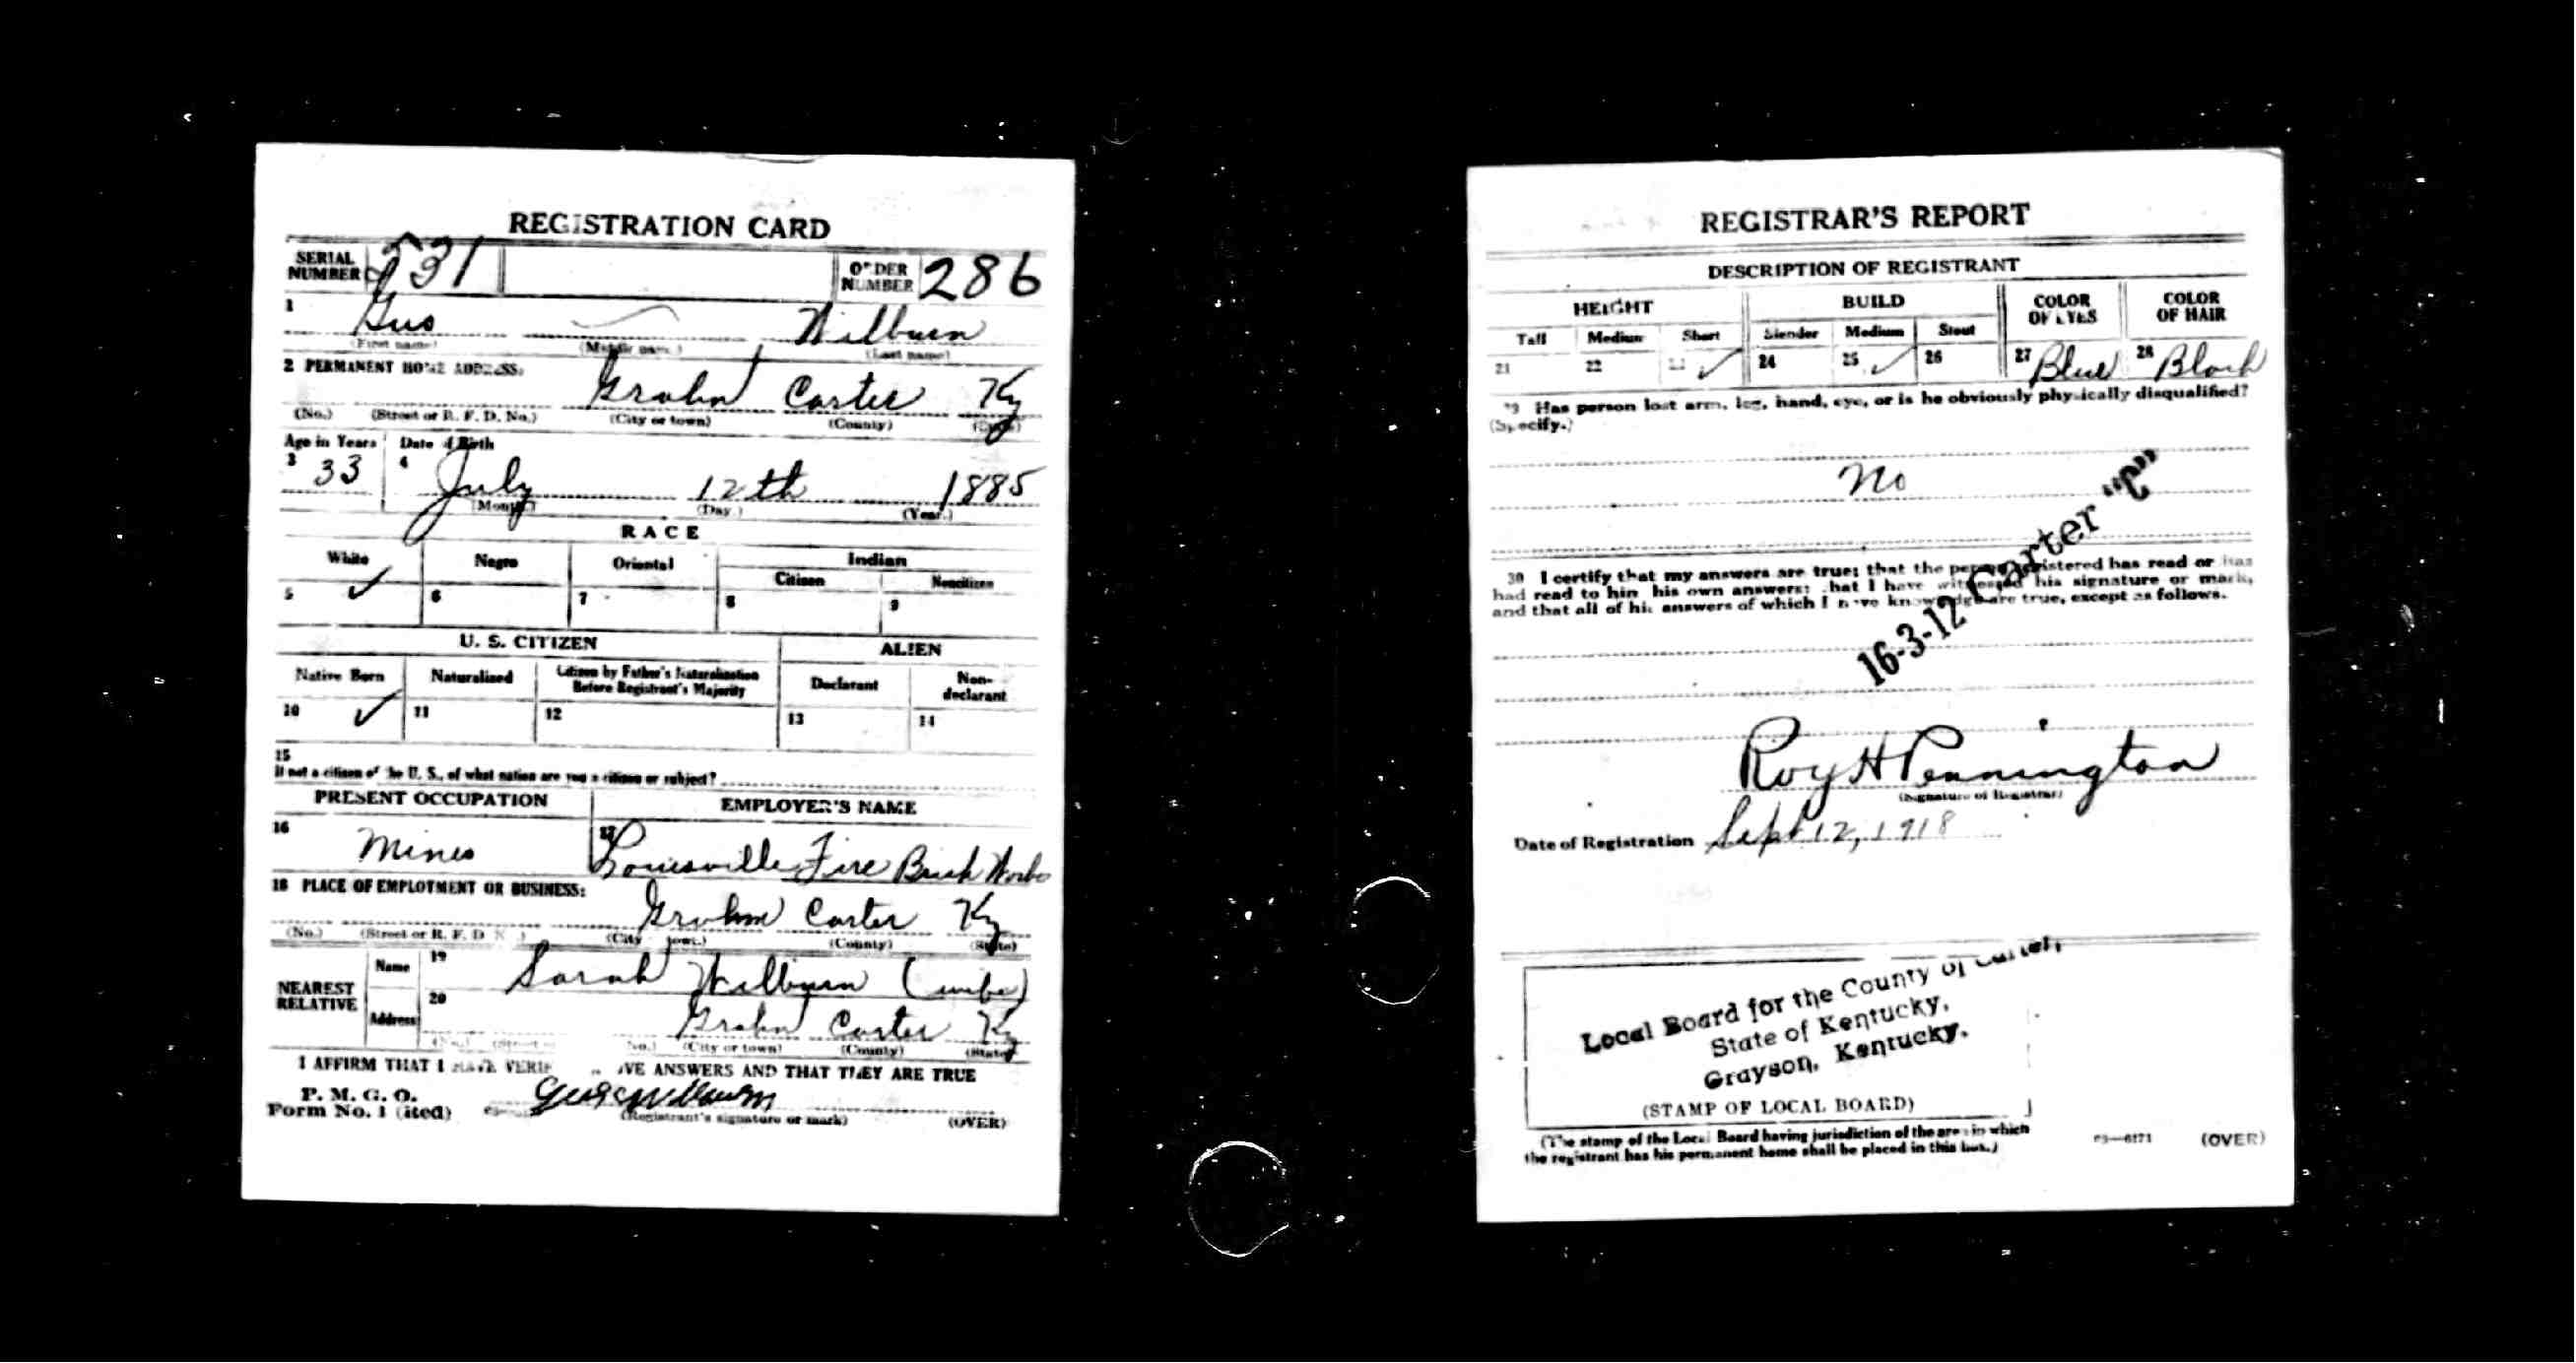 REGISTRATION CARD
SERIAL NUMBER 31 ORDER NUMBER 286
1 Gus Wilburn
(First name) (Middle name) (Last name)
2 PERMANENT HOME ADDRESS:
Grahn Carter Ky
(No.) (Street or R. F. D. No.) (City or town) (County) (State)
Age in Years Date of Birth
3 33 4 July 12th 1885
(Month.) (Day.) (Year.)
RACE
White Negro Oriental Indian
Citizen Noncitizen
5 ✓ 6 7 8 9
U. S. CITIZEN ALIEN
Native Born Naturalized Citizen by Father's Naturalization Before Registrant's Majority Declarant Non-declarant
10 ✓ 11 12 13 14
15
If not a citizen of the U. S., of what nation are you a citizen or subject?
PRESENT OCCUPATION EMPLOYER'S NAME
16 17
Miner Louisville Fire Brick Works
18 PLACE OF EMPLOYMENT OR BUSINESS:
Grahn Carter Ky
(No.) (Street or R. F. D. No.) (City or town.) (County) (State)
NEAREST RELATIVE Name 19 Sarah Wilburn (wife)
Address 20 Grahn Carter Ky
(No.) (City or town) (County) (State)
I AFFIRM THAT I HAVE VERIF VE ANSWERS AND THAT THEY ARE TRUE
P. M. G. O.
Form No. 1 (ited)
(Registrant's signature or mark) (OVER)
REGISTRAR'S REPORT
DESCRIPTION OF REGISTRANT
HEIGHT BUILD COLOR OF EYES COLOR OF HAIR
Tall Medium Short Slender Medium Stout
21 22 23 ✓ 24 25 ✓ 26 27 Blue 28 Black
29 Has person lost arm, leg, hand, eye, or is he obviously physically disqualified?
(Specify.)
No
30 I certify that my answers are true; that the person registered has read or has
had read to him his own answers; that I have witnessed his signature or mark,
and that all of his answers of which I have knowledge are true, except as follows.
16-3-12 Carter "C"
Roy H Pennington
(Signature of Registrar)
Date of Registration Sept 12, 1918
Local Board for the County of Carter,
State of Kentucky,
Grayson, Kentucky.
(STAMP OF LOCAL BOARD)
(The stamp of the Local Board having jurisdiction of the area in which
the registrant has his permanent home shall be placed in this box.)
03—6171 (OVER)